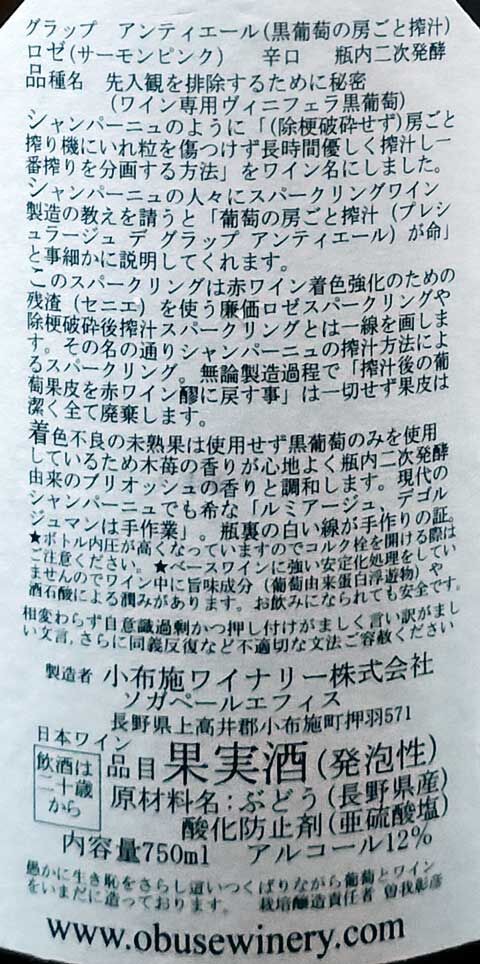 グラップ アンティエール(黒葡萄の房ごと搾汁)
ロゼ(サーモンピンク) 辛口 瓶内二次発酵
品種名 先入観を排除するために秘密
(ワイン専用ヴィニフェラ黒葡萄)
シャンパーニュのように「(除梗破砕せず)房ごと
搾り機にいれ粒を傷つけず長時間優しく搾汁し一
番搾りを分画する方法」をワイン名にしました。
シャンパーニュの人々にスパークリングワイン
製造の教えを請うと「葡萄の房ごと搾汁（プレシ
ュラージュ デ グラップ アンティエール）が命」
と事細かに説明してくれます。
このスパークリングは赤ワイン着色強化のための
残渣（セニエ）を使う廉価ロゼスパークリングや
除梗破砕後搾汁スパークリングとは一線を画しま
す。その名の通りシャンパーニュの搾汁方法によ
るスパークリング。無論製造過程で「搾汁後の葡
萄果皮を赤ワイン醪に戻す事」は一切せず果皮は
潔く全て廃棄します。
着色不良の未熟果は使用せず黒葡萄のみを使用
しているため木苺の香りが心地よく瓶内二次発酵
由来のブリオッシュの香りと調和します。現代の
シャンパーニュでも希な「ルミアージュ、デゴル
ジュマンは手作業」。瓶裏の白い線が手作りの証。
★ボトル内圧が高くなっていますのでコルク栓を開ける際は
ご注意ください。★ベースワインに強い安定化処理をしてい
ませんのでワイン中に旨味成分（葡萄由来蛋白浮遊物）や
酒石酸による濁みがあります。お飲みになられても安全です。
相変わらず自意識過剰かつ押し付けがましく言い訳がまし
い文言,さらに同義反復など不適切な文法ご容赦ください
製造者 小布施ワイナリー株式会社
ソガペールエフィス
長野県上高井郡小布施町押羽571
日本ワイン
飲酒は
二十歳
から
品目 果実酒(発泡性)
原材料名:ぶどう(長野県産)
酸化防止剤(亜硫酸塩)
内容量750ml アルコール12%
愚かに生き恥をさらし這いつくばりながら葡萄とワイン
をいまだに造っております。 栽培醸造責任者 曽我彰彦
www.obusewinery.com